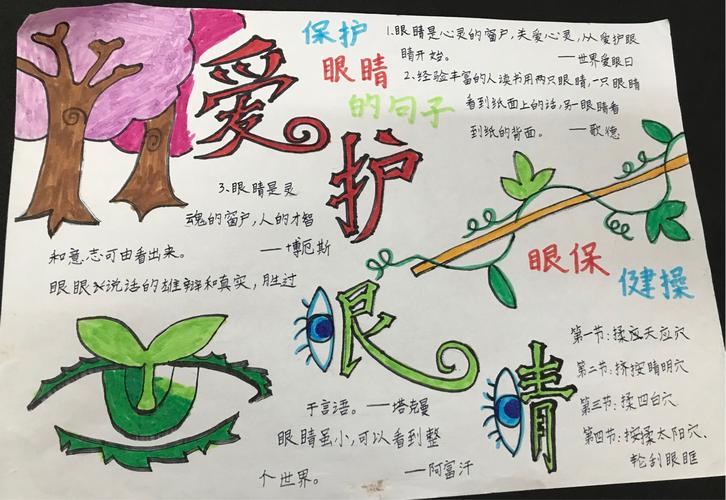 爱护
眼睛
保护
眼睛
的句子
1.眼睛是心灵的窗户,关爱心灵,从爱护眼
睛开始。 ——世界爱眼日
2.经验丰富的人读书用两只眼睛,一只眼睛
看到纸面上的话,另一眼睛看
到纸的背面。 ——歌德
3.眼睛是灵
魂的窗户,人的才智
和意志可由看出来。 ——博厄斯
眼睛说话的雄辩和真实,胜过
于言语。——塔克曼
眼睛虽小,可以看到整
个世界。 ——阿富汗
眼保
健操
第一节:揉天应穴
第二节:挤按睛明穴
第三节:揉四白穴
第四节:按揉太阳穴.
轮刮眼眶